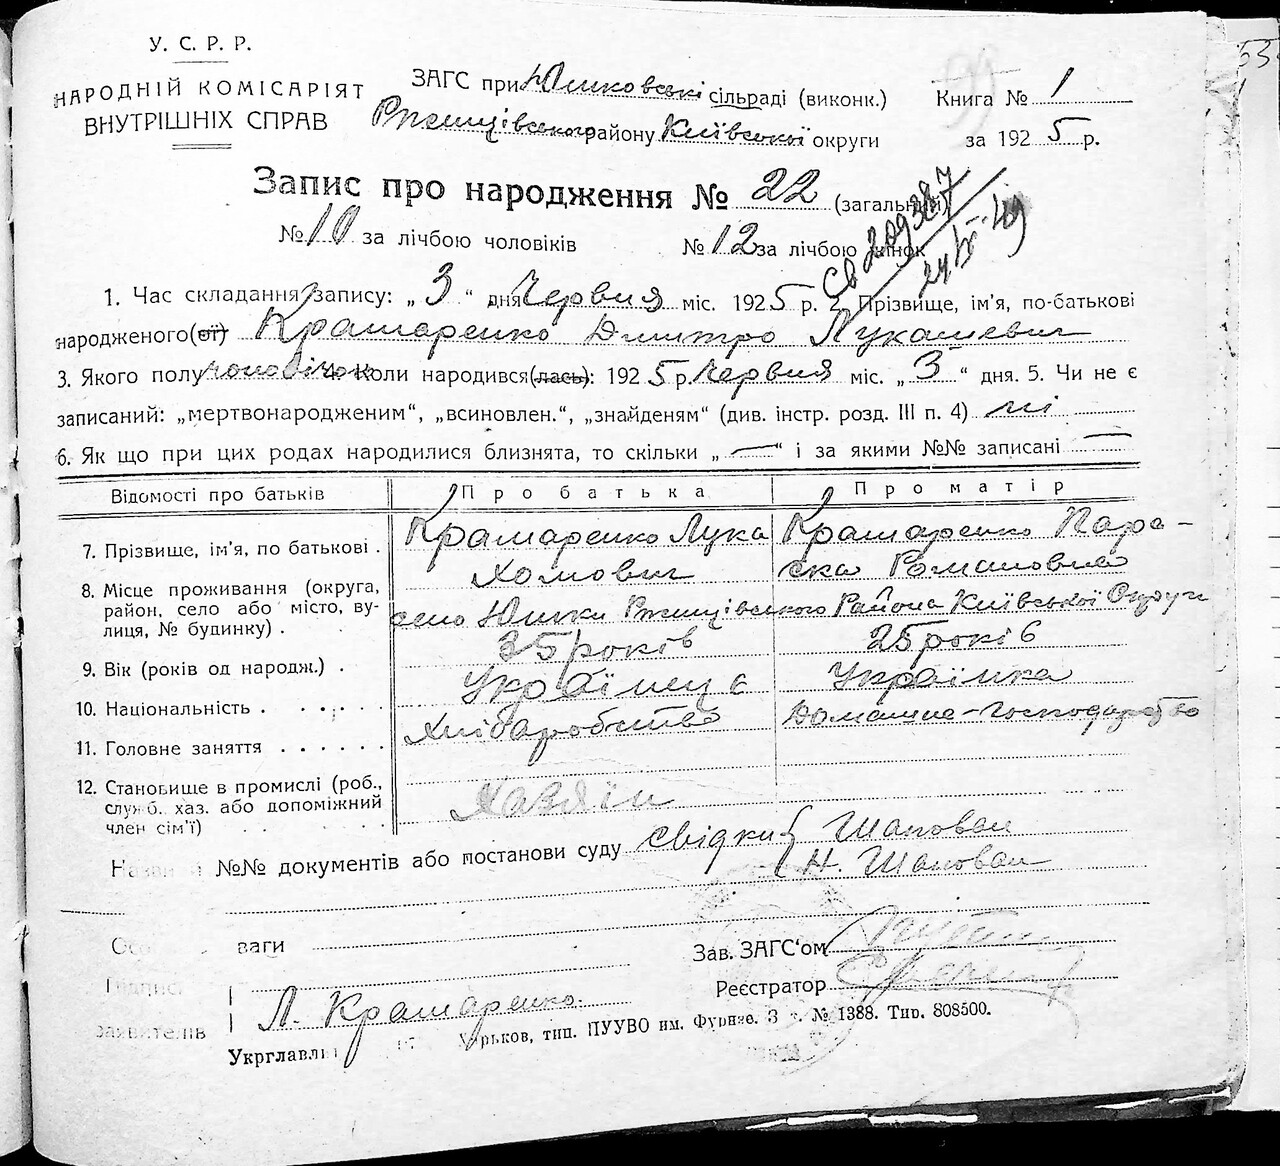 У. С. Р. Р.
НАРОДНІЙ КОМІСАРІЯТ
ВНУТРІШНІХ СПРАВ
ЗАГС при Юшковські сільраді (виконк.)
Ржищівського району Київської округи
Книга № 1
за 1925 р.
Запис про народження № 22 (загальний)
№ 10 за лічбою чоловіків № 12 за лічбою жінок
Св 209387
24/IX-49
1. Час складання запису: „ 3 “ дня Червня міс. 1925 р. 2. Прізвище, ім’я, по-батькові
народженого(ої) Крамаренко Дмитро Лукашевич
3. Якого полу чоловічок 4. Коли народився(лась): 1925 р. Червня міс. „ 3 “ дня. 5. Чи не є
записаний: „мертвонародженим“, „всиновлен.“, „знайденям“ (див. інстр. розд. III п. 4) ні
6. Як що при цих родах народилися близнята, то скільки „ — “ і за якими №№ записані —
Відомості про батьків Про батька Про матір
7. Прізвище, ім’я, по батькові . Крамаренко Лука Хомович Крамаренко Пара-ска Романовна
8. Місце проживання (округа, район, село або місто, вулиця, № будинку) . село Юшки Ржищівського Района Київської Округи
9. Вік (років од народж.) . 35 років 25 років
10. Національність . . . . . Українець Українка
11. Головне заняття . . . . . . Хлібаробство Домашнє-господарство
12. Становище в промислі (роб.,
служб. хаз. або допоміжний
член сім’ї) Хазяїн
Назви №№ документів або постанови суду свідки { Шаповал
Н. Шаповал
ваги
Зав. ЗАГС‘ом
Підписи
Реєстратор
заявителів Л. Крамаренко.
Укрглавліт Харьков, тип. ПУУВО им. Фрунзе. З. № 1388. Тир. 808500.